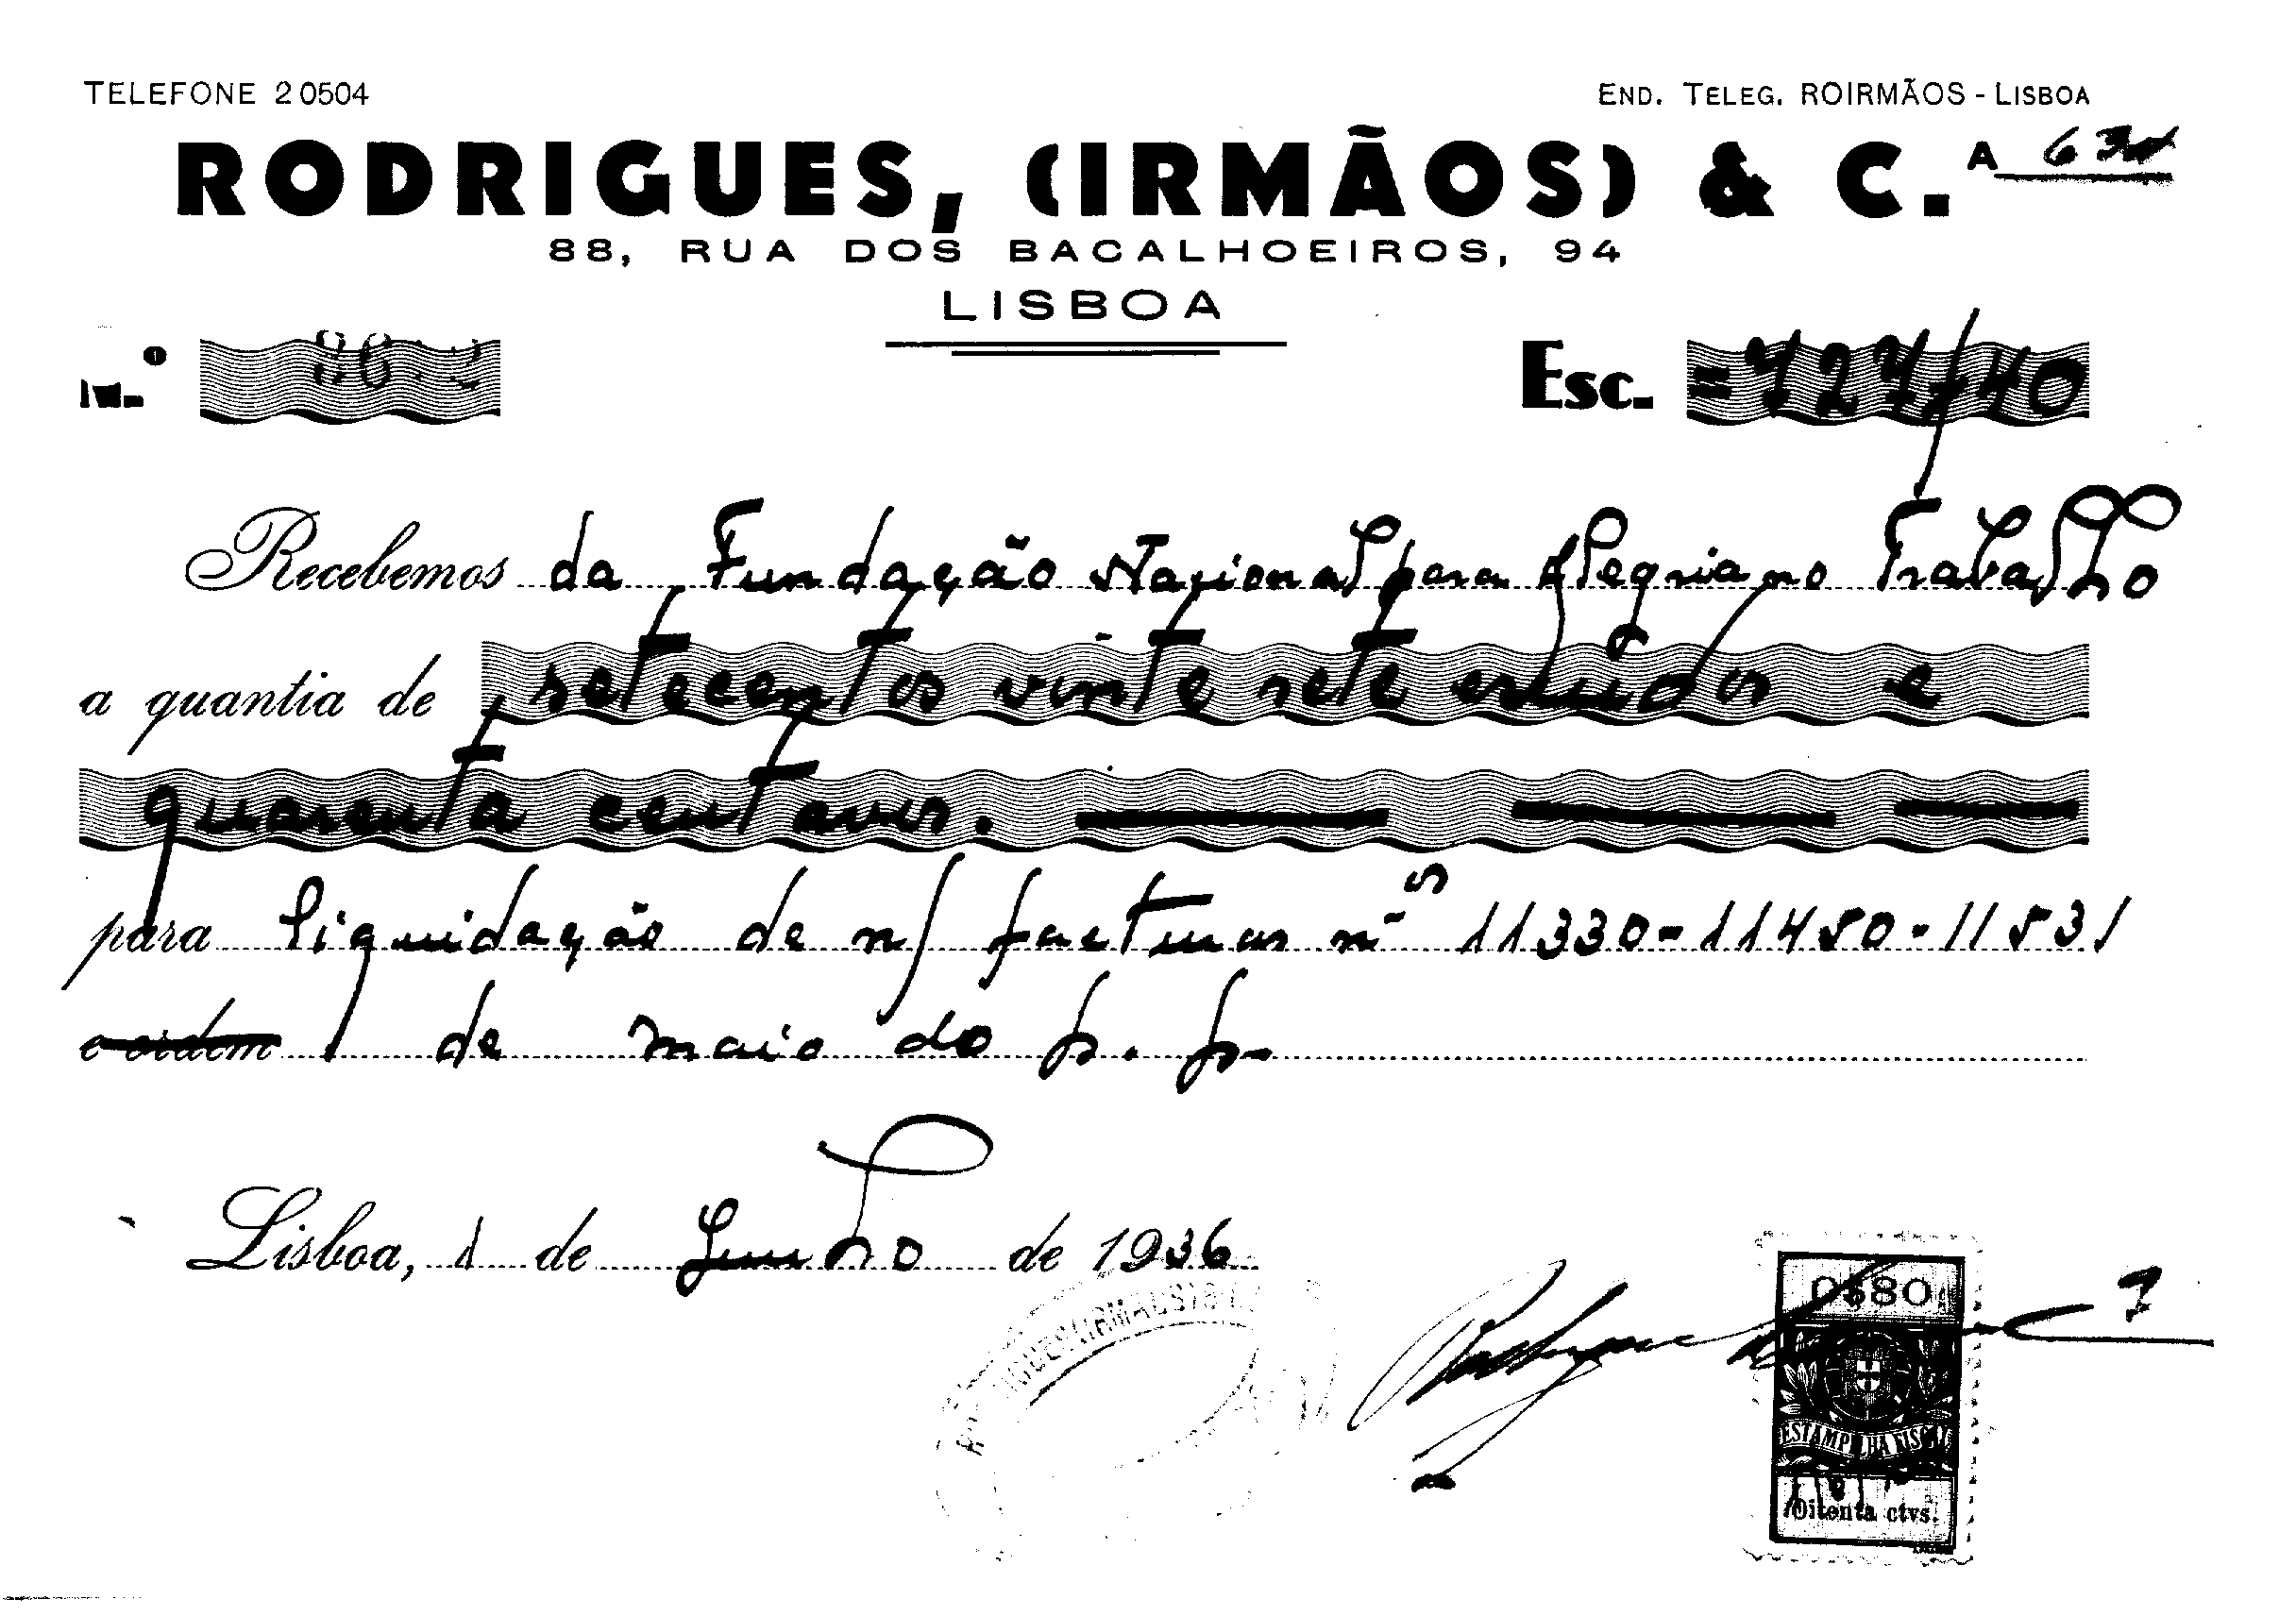 TELEFONE 20504
END. TELEG. ROIRMÃOS - LISBOA
RODRIGUES, (IRMÃOS) & C.A
88, RUA DOS BACALHOEIROS, 94
LISBOA
N.º
Esc. =727/40
Recebemos da Fundação Nacional para Alegria no Trabalho
a quantia de setecentos vinte sete escudos e
quarenta centavos.
para liquidação de n/ facturas nºs 11330-11480-11531
e ordem de maio do p. p.
Lisboa, 1 de Junho de 1936
0$80
ESTAMPILHA FISCAL
Oitenta ctvs.